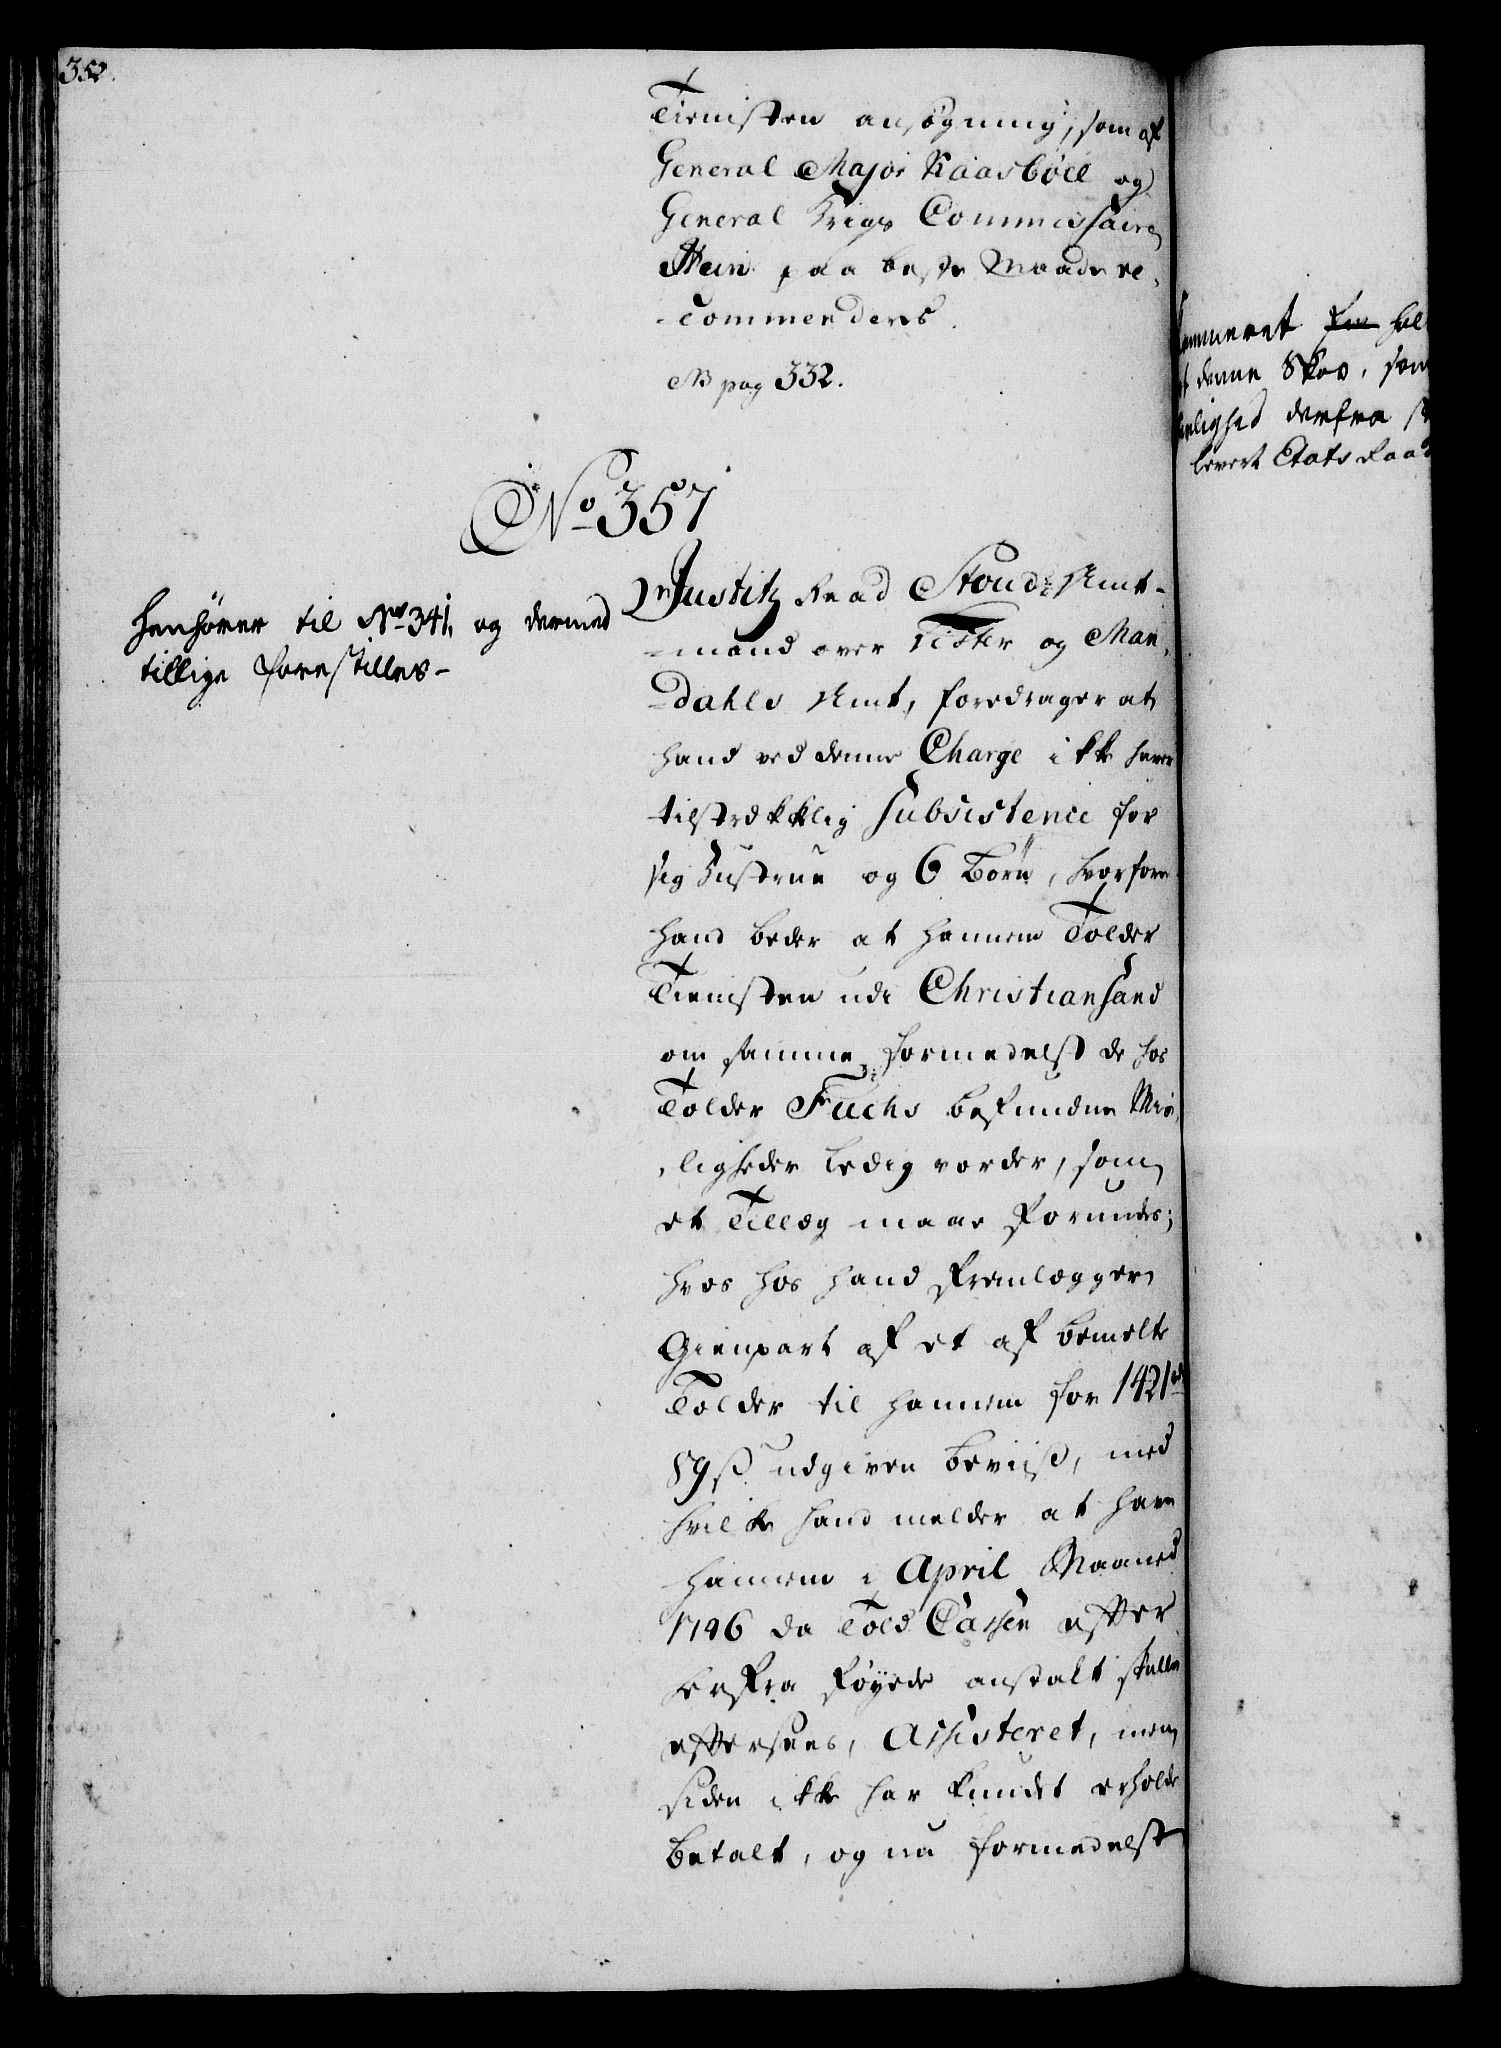 352.
Tienisten ansøgning, som af
General Major Kaasbøll og
General Krigs Commissairen
Hein paa beste Maade re-
-commenderes.
NB pag 332.
No 357
Henhører til No 341, og dermed
tillige forestilles-
Justitz Raad Stoud Amt-
-mand over Lister og Man-
-dahls Amt, foredrager at
hand ved denne Charge ikke haver
tilstrekkelig Subsistence for
sig Hustrue og 6 Børn, hvorfore
hand beder at hannem Tolder
Tienisten udi Christiansand
om samme formedelst de hos
Tolder Fuchs befundne Mis-
-ligheder ledig vorder, som
et Tillæg maae forundes;
hvos hos hand fremlegger
Gienpart af et af bemelte
Tolder til hannem for 1421 rd
89 ß udgiven beviis, med
hvilke hand melder at have
hannem i April Maaned
1746 da Told Cassen efter
herfra føyede anstalt skulle
eftersees, Assisteret, men
siden ikke har kundet erholde
betalt, og nu formedelst
Cammeret hol
denne Skov, som
derfra
levert Etats Raad